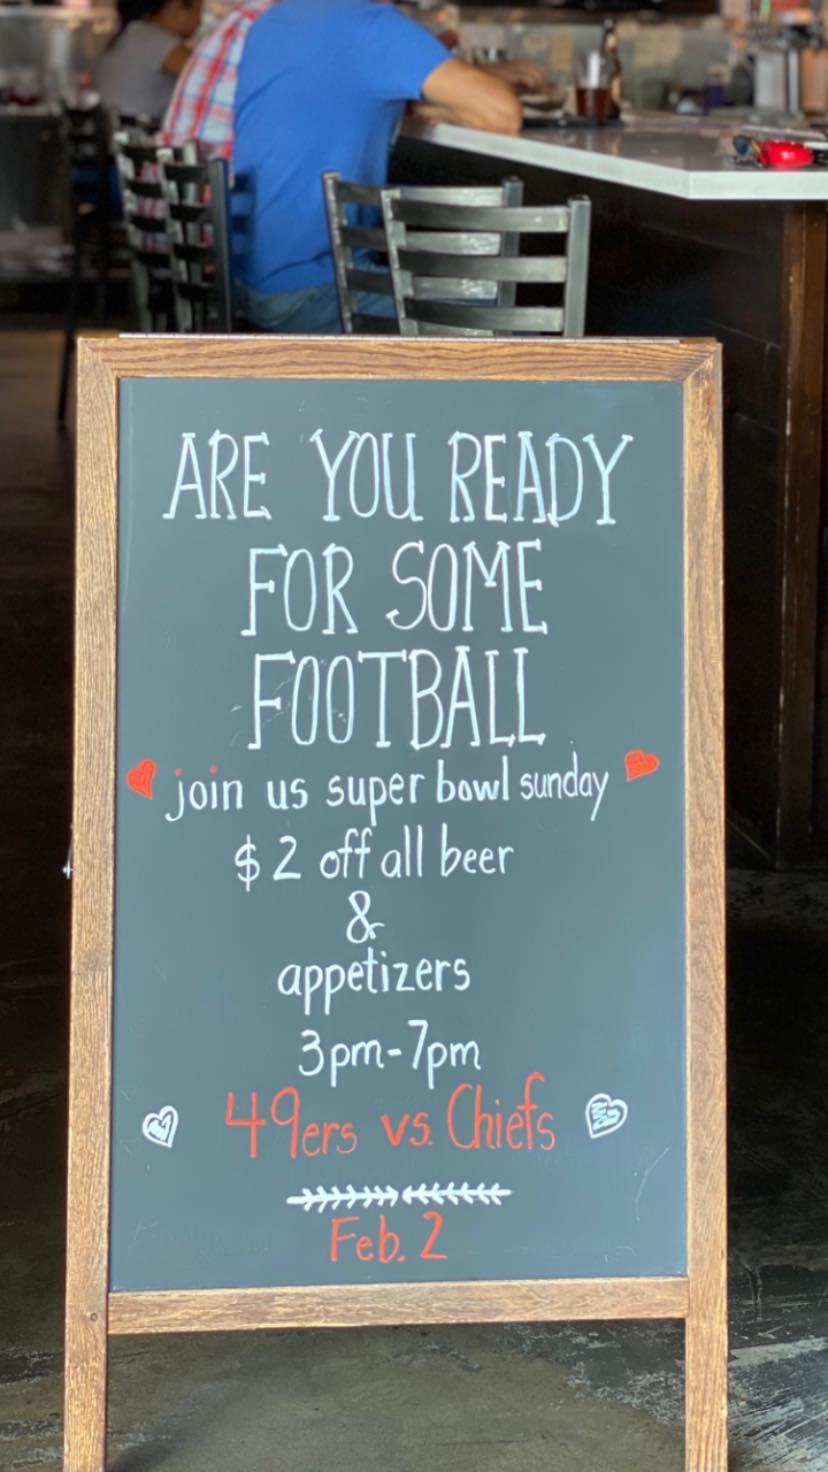 ARE YOU READY
FOR SOME
FOOTBALL
join us super bowl sunday
$2 off all beer
&
appetizers
3pm-7pm
49ers vs. Chiefs
Feb. 2